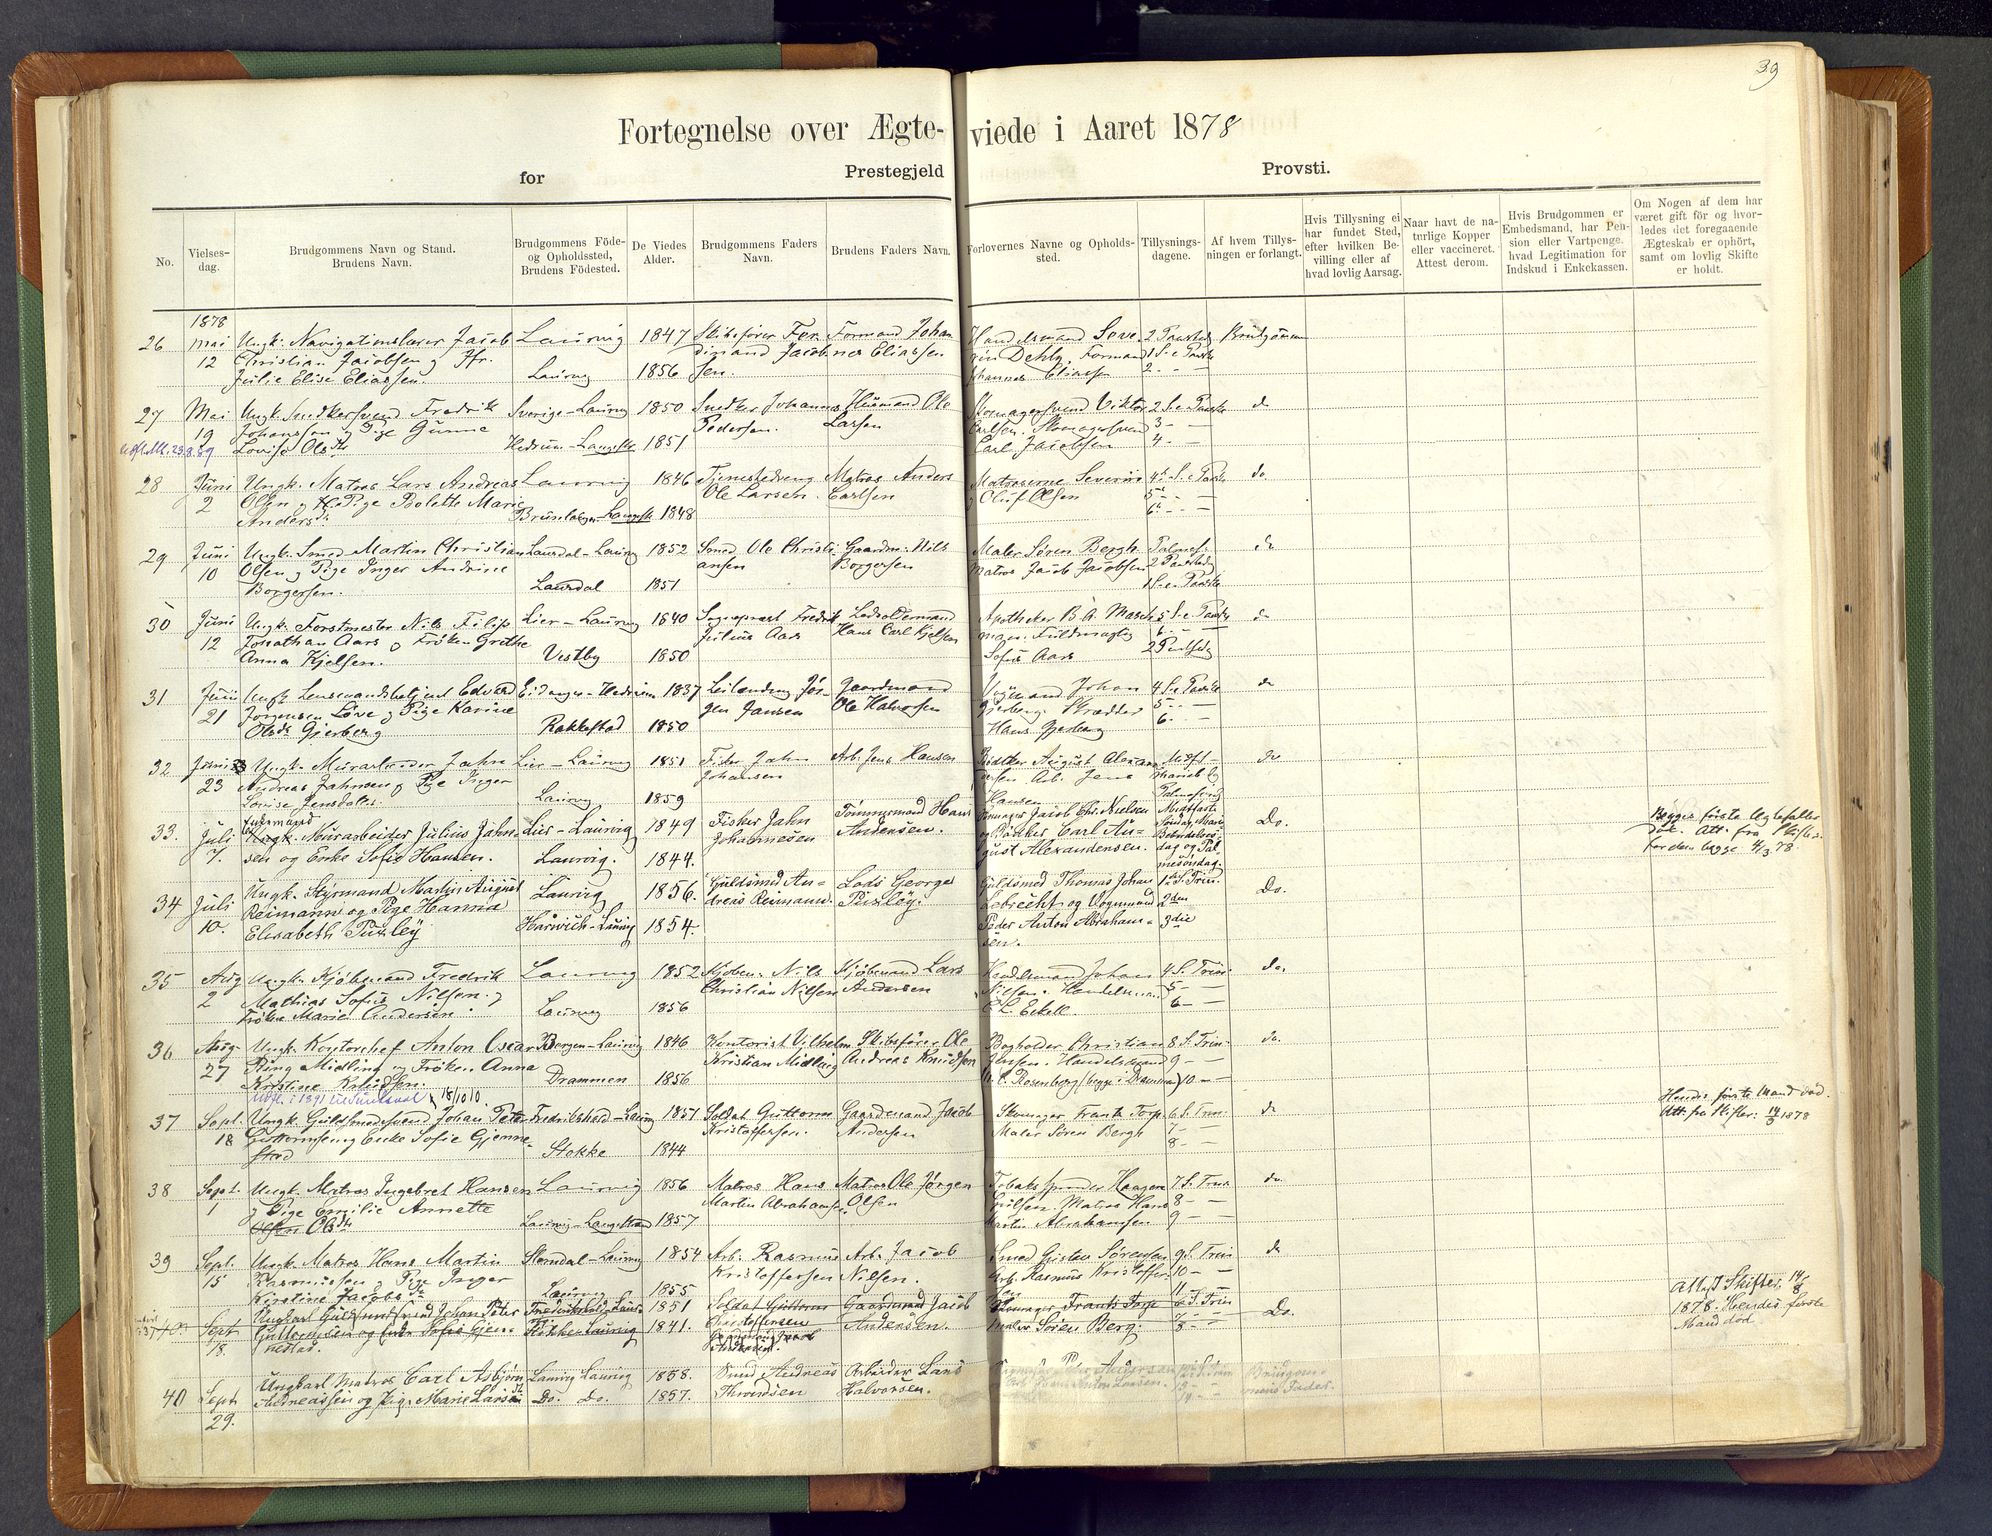 39
Fortegnelse over Ægte- viede i Aaret 1878
for Prestegjeld Provsti.
No.
Vielses-
dag.
Brudgommens Navn og Stand.
Brudens Navn.
Brudgommens Föde-
og Opholdssted,
Brudens Födested.
De Viedes
Alder.
Brudgommens Faders
Navn.
Brudens Faders Navn.
Forlovernes Navne og Opholds-
sted.
Tillysnings-
dagene.
Af hvem Tillys-
ningen er forlangt.
Hvis Tillysning ei
har fundet Sted,
efter hvilken Be-
villing eller af
hvad lovlig Aarsag.
Naar havt de na-
turlige Kopper
eller vaccineret.
Attest derom.
Hvis Brudgommen er
Embedsmand, har Pen-
sion eller Vartpenge.
hvad Legitimation for
Indskud i Enkekassen.
Om Nogen af dem har
været gift för og hvor-
ledes det foregaaende
Ægteskab er ophört,
samt om lovlig Skifte
er holdt.
1878
26 Mai Ungk. Navigationslærer Jacob Laurvig 1847 Skibsfører Fer- Formand Johan
12 Christian Jacobsen og Jfr. dinand Jacob- nes Eliassen
Julie Elise Eliassen. Laurvig 1856 sen.
Handelsmand Seve-
rin Dehly. Formand
Johannes Eliassen
Brudgommen
27 Mai Ungk. Snedkersvend Fredrik Sverige - Laurvig 1850 Snedker Johannes Husmand Ole
19 Johansson og Pige Gunne Pedersen. Larsen
Lovise Olsdtr Hedrum - Langestr. 1851
Skomagersvend Viktor 2 S. e. Paaske do
Carlsen. Skomagersvend 3 -
Carl Jacobsen 4 -
28 Juni Ungk. Matros Lars Andreas Laurvig 1846 Tjenestedreng Matros Anders
2 Olsen og Pige Bolette Marie Ole Larsen. Carlsen
Andersdtr Brunlanges - Langestr. 1848
Matroserne Severin 4 S. e. Paaske do
og Oluf Olsen 5
6
29 Juni Ungk. Smed Martin Christian Laurdal - Laurvig 1852 Smed Ole Christi- Gaardm. Nils
10 Olsen og Pige Inger Andrine ansen Borgersen
Borgersen. Laurdal 1851
Maler Søren Bergh. Palmes. do
Matros Jacob Jacobsen 2 Paaskedag
1 S. e. Paaske
30 Juni Ungk. Forstmester Nils Filip Lier - Laurvig 1840 Sogneprest Fredrik Lodsoldermand
12 Jonathan Aars og Frøken Grethe Julius Aars Hans Carl Kjelsen
Anna Kjelsen. Vestby 1850
Apotheker B. A. Masch- 5 S. e. Paaske do
man. Fuldmægtig 6
Sofus Aars 2 Pintsedag
31 Juni Ungk. Lensmandsbetjent Edvard Eidanger - Hedrum 1837 Leilænding Jør- Gaardmand
21 Jørgensen Løve og Pige Karine gen Jansen Ole Halvorsen
Olsdtr Gjerberg Rakkestad 1850
Johan 4 S. e. Paaske do
Gjerberg. Skrædder 5
Hans Gjerberg 6
32 Juni Ungk. Murarbeider Jahn Lier - Laurvig 1851 Fisker Jahn Arb. Jens Hansen
23 Andreas Jahnsen og Pige Inger Johansen
Lovise Jensdatter Laurvig 1859
Bødtker August Alexan- do
dersen Arb. Jens
Hansen Palmesøndag
33. Juli Enkemand
7. Ungk. Murarbeider Julius Jahn- Lier - Laurvig 1849 Fisker Jahn Tømmermand Hans
sen og Enke Sofie Hansen. Laurvig. 1844. Johannesen Andersen.
Skomager Jacob Chr. Nielsen Midtfaste Do.
og Bødker Carl Au- Søndag, Marie
gust Alexandersen. Bebudelses-
dag og Pal-
mesøndag.
Begges første Ægtefæller
død. Att. fra Skifter.
for dem begge 4/3 78.
34 Juli Ungk. Styrmand Martin August Laurvig 1856. Guldsmed An- Lods George
10. Reimann og Pige Hanna dreas Reimann. Puxley.
Elisabeth Puxley Harwich - Laurvig 1854.
Guldsmed Thomas Johan 1ste S. Trin. Do.
Lebrecht og Vognmand 2den
Peder Anton Abraham- 3die
sen.
35 Aug Ungk. Kjøbmand Fredrik Laurvig 1852 Kjøbm. Nils Kjøbmand Lars
2 Mathias Sofus Nilsen og Christian Nilsen Andersen
Frøken Marie Andersen. Laurvig 1856
Handelsmand Johan 4 S. Trin. do.
Nilsen. Handelsmand 5 -
C. L. Eckell 6 -
36 Aug Ungk. Kontorchef Anton Oscar Bergen - Laurvig 1846 Kontorist Vilhelm Skibsfører Ole
27 Ring Midling og Frøken Anna Kristian Midling Andreas Knudsen
Kristine Knudsen. Drammen 1856
Bogholder Christian 8 S. Trin. do.
Jensen. Handelsmand 9 -
Rosenberg (begge i Drammen) 10 -
37 Sept. Ungk. Guldsmedsvend Johan Peter Fredrikshald - Laurvig 1851 Soldat Guttorm Gaardmand Jacob
18 Guttormsen og Enke Sofie Gjenne- Kristoffersen. Andersen
stad Stokke 1844
Skomager Frantz Torp 6 S. Trin. do
Maler Søren Bergh 7 -
8 -
Hendes første Mand død.
Att. fra Skifter. 14/8 1878
38 Sept. Ungk. Matros Ingebret Hansen Laurvig 1856 Matros Hans Matros Ole Jørgen
1 og Pige Emilie Annette Martin Abrahamsen Olsen
Olsen Olsdtr Laurvig - Langestrand 1857
Tobakspinder Haagen 7 S. Trin. do.
Matros Hans 8 -
Martin Abrahamsen 9 -
39 Sept. Ungk. Matros Hans Martin Slemdal - Laurvig 1854 Arb. Rasmus Arb. Jacob
15 Rasmussen og Pige Inger Kristoffersen Nilsen.
Kirstine Jacobsdtr Laurvig 1855
Smed Gustav Sørensen 9 S. Trin do
Arb. Rasmus Kristoffer- 10 -
sen 11 -
Sept Ungkarl Guldsmedsvend Johan Peter Fredrikshald - Laurvig 1851 Soldat Guttorm Gaardmand Jacob
18. Guttormsen og Enke Sofie Gjen- Stokke - Laurvig 1841. Christoffersen Andersen.
nestad.
Skomager Frants Torp 6 S. Trin Do.
Maler Søren Berg. 8 -
Attest Skifter. 14/8
1878. Hendes første
Mand død
40 Sept Ungkarl Matros Carl Asbjørn Laurvig Laurvig 1858. Smed Andreas Arbeider Lars
29. Andreassen og Pige Marie Larsdtr Do. Do. 1857. Thronsen Halvorsen.
Brudgom-
mens Fader.